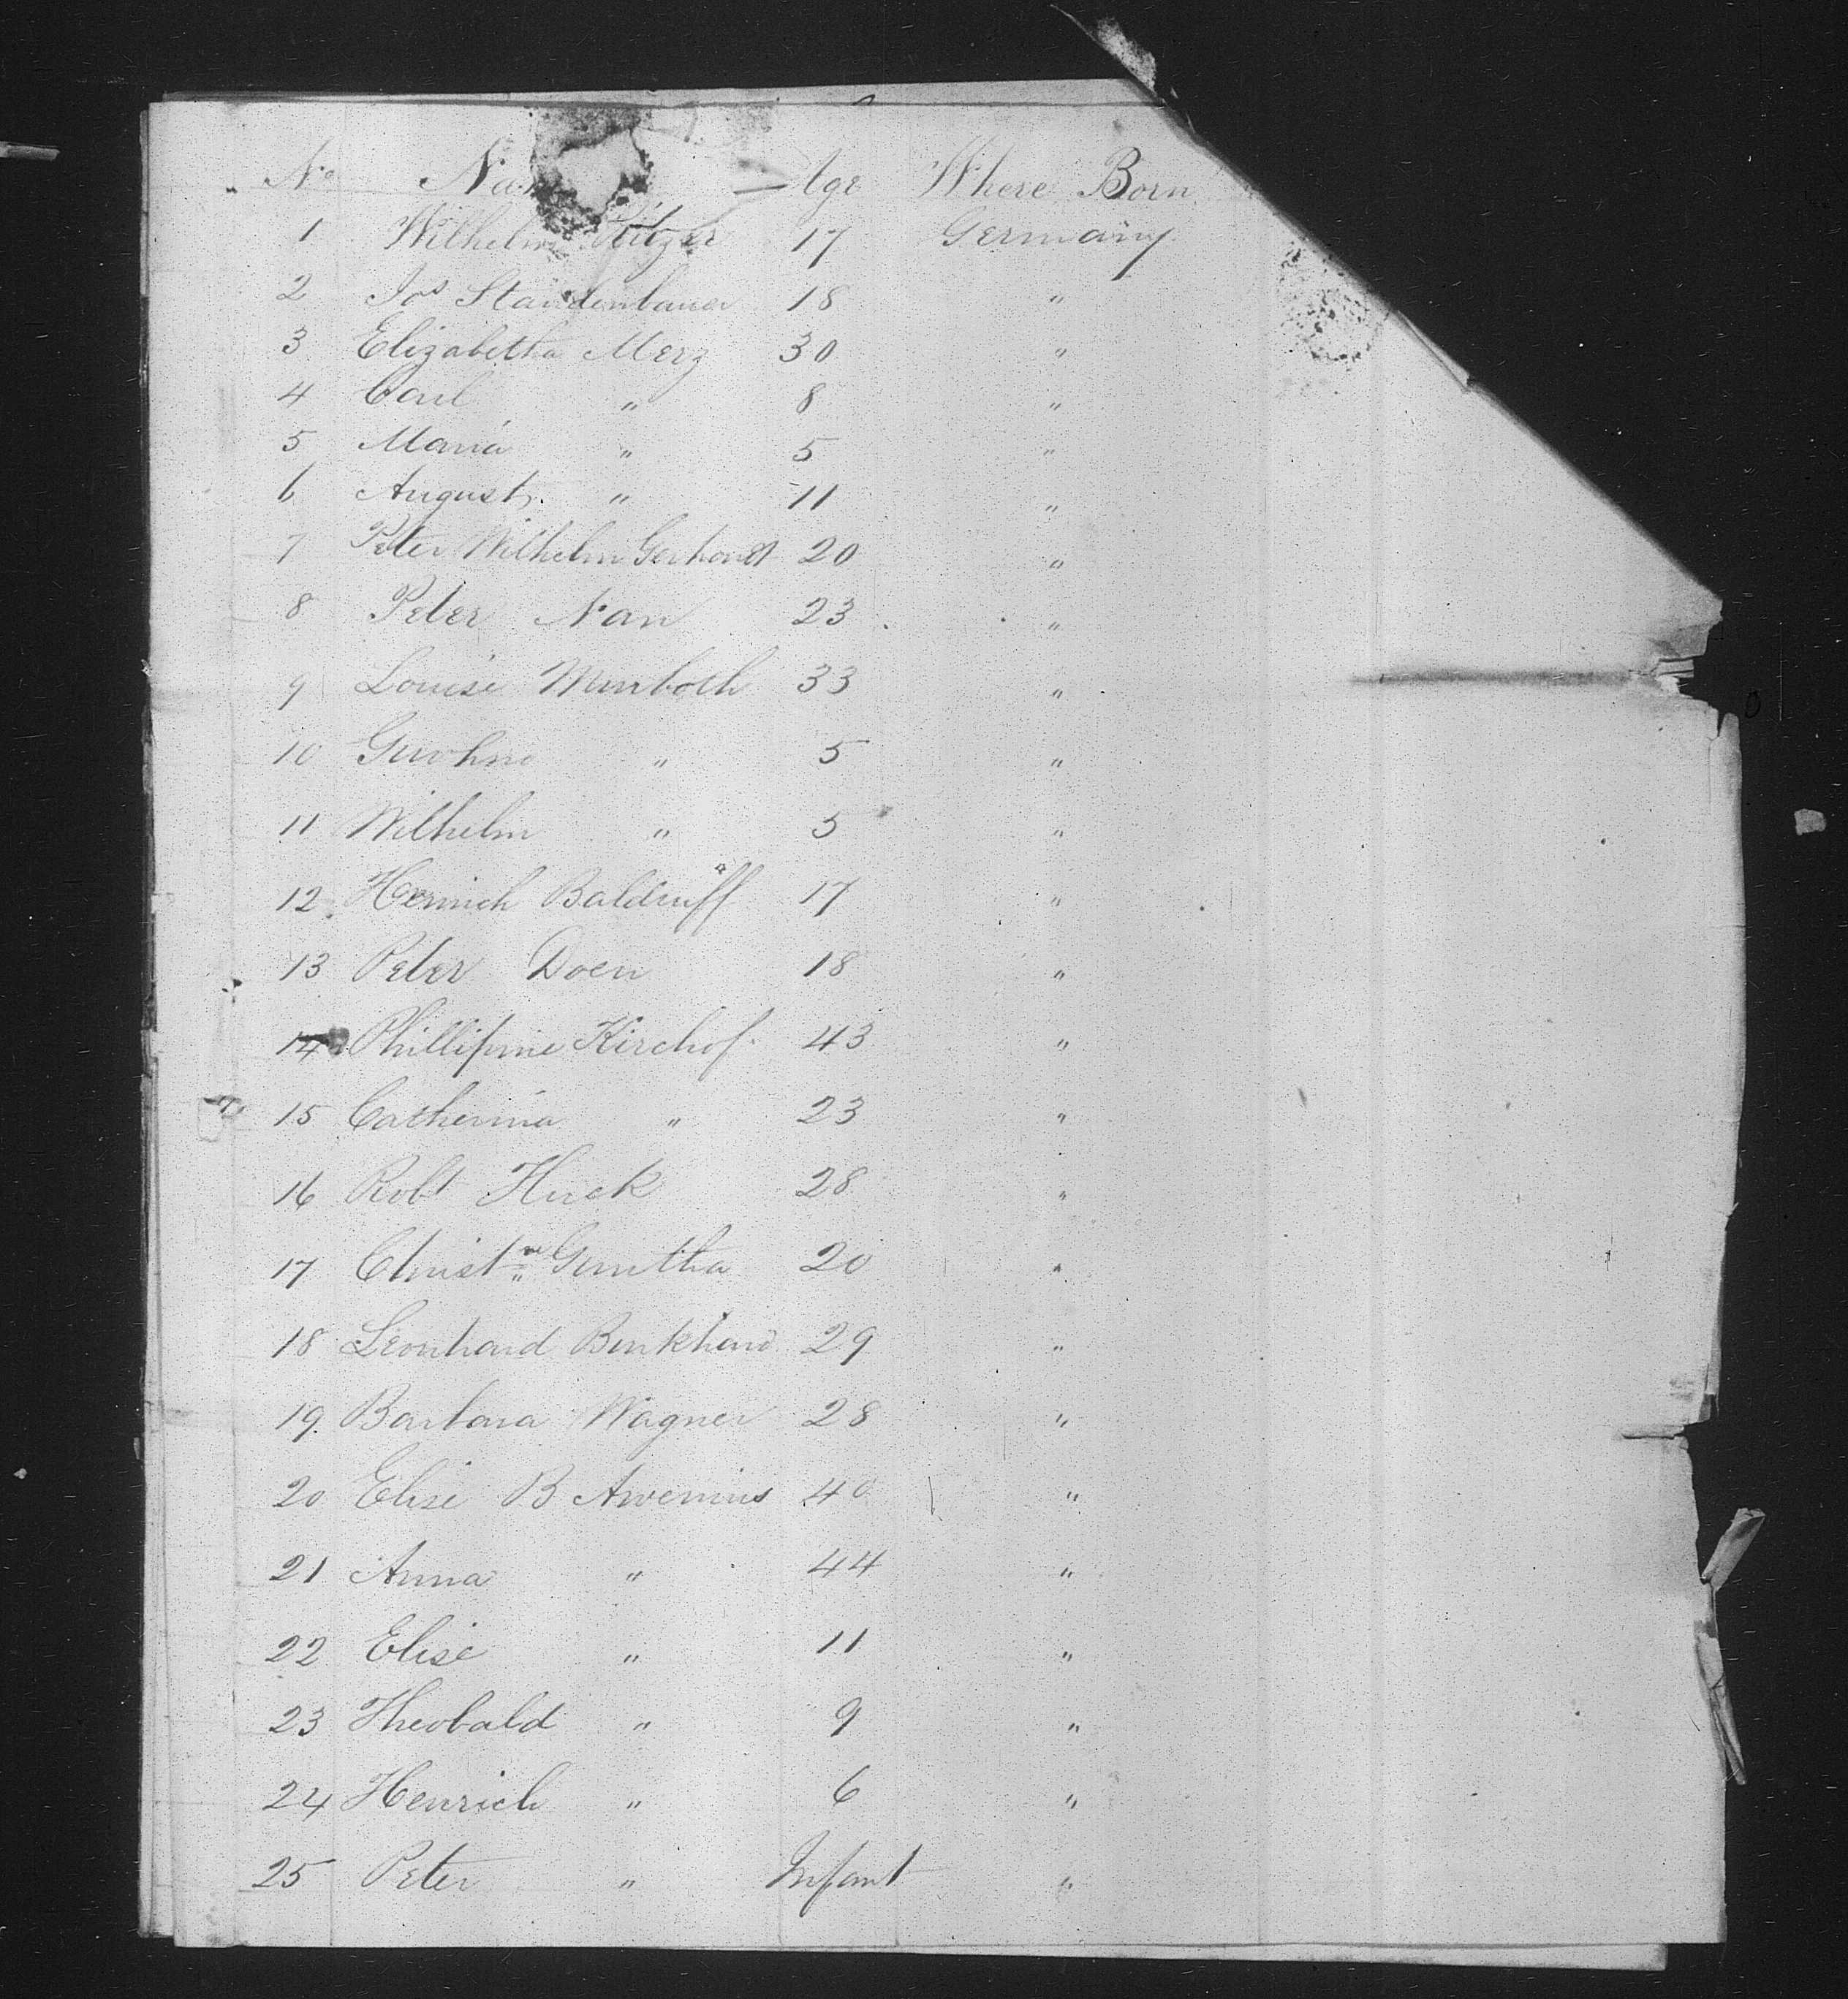 No Na Age Where Born
1 Wilhelm 17 Germany
2 Jos Staudenbauer 18 "
3 Elizabetha Merz 30 "
4 Carl " 8 "
5 Maria " 5 "
6 August " 11 "
7 Peter Wilhelm Gerhardt 20 "
8 Peter Nan 23 "
9 Louise 33 "
10 " 5 "
11 Wilhelm " 5 "
12 Henrich Baldruff 17 "
13 Peter Doen 18 "
14 Phillipine Kirchof 43 "
15 Catherina " 23 "
16 Robt Huck 28 "
17 Christn Guntha 20 "
18 Leonhard Burkhard 29 "
19 Barbara Wagner 28 "
20 Elise B 40 "
21 Anna " 44 "
22 Elise " 11 "
23 Theobald " 9 "
24 Henrich " 6 "
25 Peter " Infant "